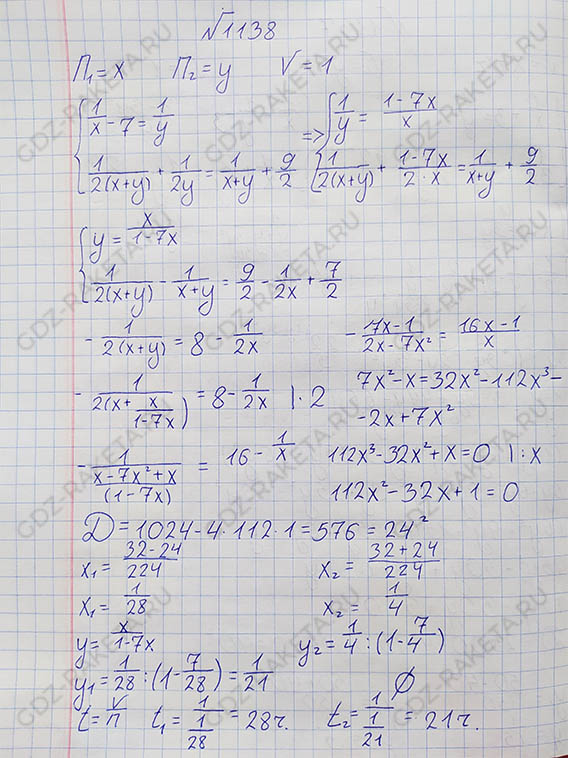 √1138
П₁=x П₂=y V=1
{1/x - 7 = 1/y => {1/y = (1-7x)/x
1/(2(x+y)) + 1/(2y) = 1/(x+y) + 9/2 1/(2(x+y)) + (1-7x)/(2·x) = 1/(x+y) + 9/2
{y = x/(1-7x)
1/(2(x+y)) - 1/(x+y) = 9/2 - 1/(2x) + 7/2
- 1/(2(x+y)) = 8 - 1/(2x)
- 1/(2(x + x/(1-7x))) = 8 - 1/(2x) |·2
- 1/((x-7x²+x)/(1-7x)) = 16 - 1/x
- (7x-1)/(2x-7x²) = (16x-1)/x
7x²-x=32x²-112x³-
-2x+7x²
112x³-32x²+x=0 |:x
112x²-32x+1=0
D=1024-4·112·1=576=24²
x₁=(32-24)/224 x₂=(32+24)/224
x₁=1/28 x₂=1/4
y=x/(1-7x) y₂=1/4:(1-7/4)
y₁=1/28:(1-7/28)=1/21 ∅
t=V/П t₁=1/(1/28)=28ч. t₂=1/(1/21)=21ч.
GDZ-RAKETA.RU